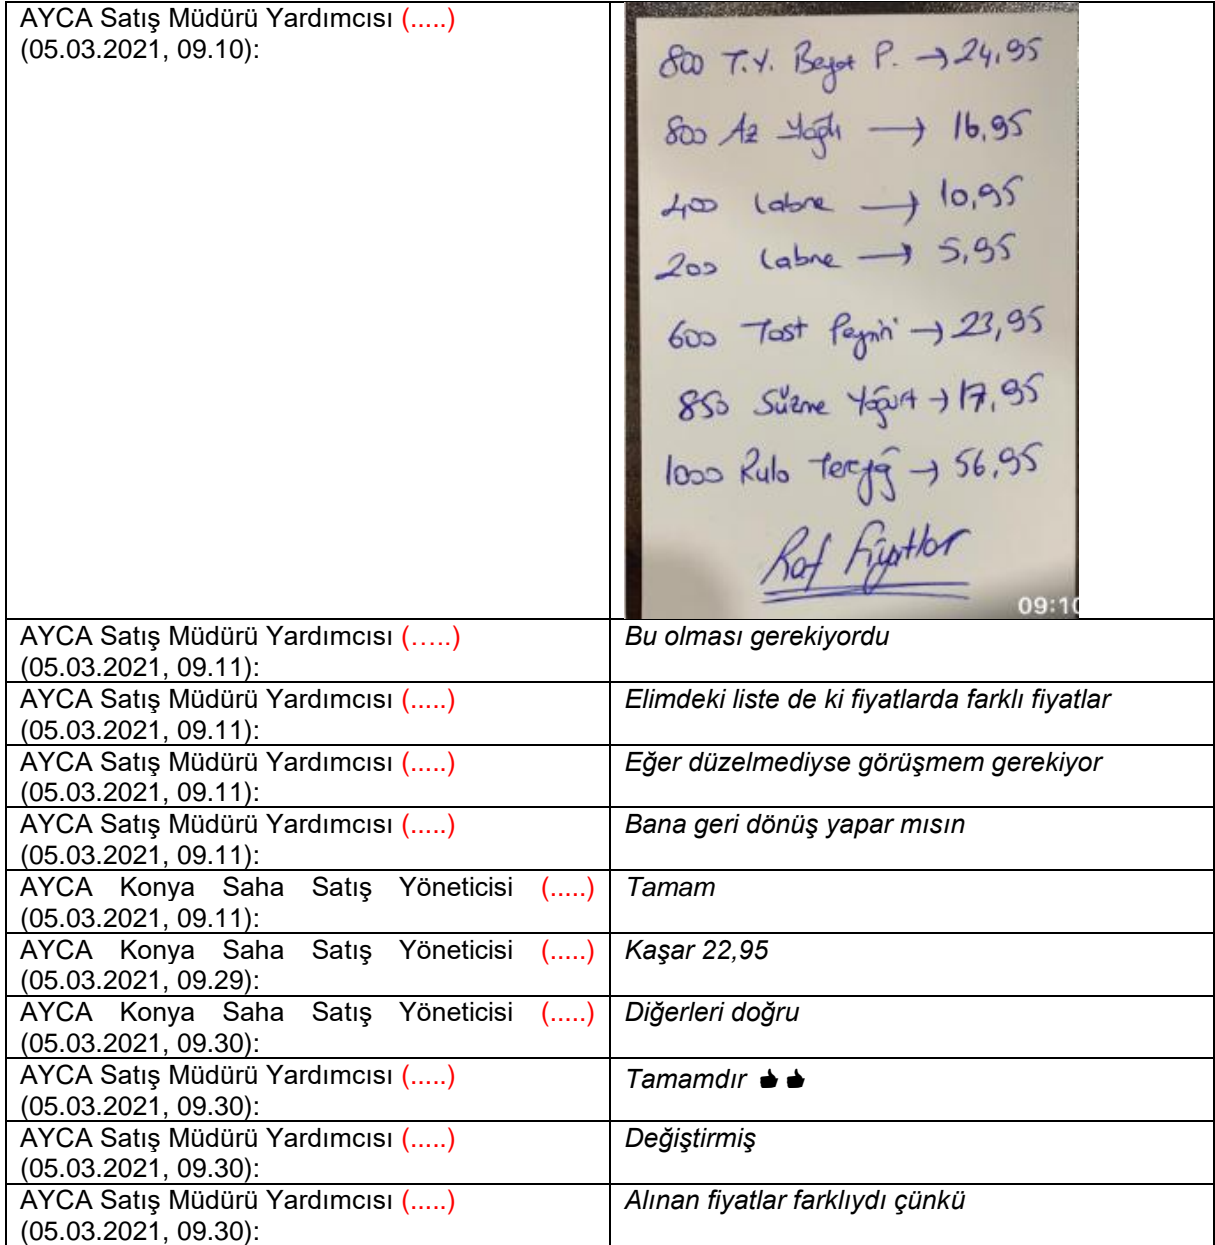 AYCA Satış Müdürü Yardımcısı (.....)
(05.03.2021, 09.10):
800 T.Y. Beyaz P. → 24,95
800 Az Yağlı → 16,95
400 Labne → 10,95
200 Labne → 5,95
600 Tost Peyniri → 23,95
850 Süzme Yoğurt → 17,95
1000 Rulo Tereyağ → 56,95
Raf Fiyatlar
09:10
AYCA Satış Müdürü Yardımcısı (.....)
(05.03.2021, 09.11):
Bu olması gerekiyordu
AYCA Satış Müdürü Yardımcısı (.....)
(05.03.2021, 09.11):
Elimdeki liste de ki fiyatlarda farklı fiyatlar
AYCA Satış Müdürü Yardımcısı (.....)
(05.03.2021, 09.11):
Eğer düzelmediyse görüşmem gerekiyor
AYCA Satış Müdürü Yardımcısı (.....)
(05.03.2021, 09.11):
Bana geri dönüş yapar mısın
AYCA Konya Saha Satış Yöneticisi (.....)
(05.03.2021, 09.11):
Tamam
AYCA Konya Saha Satış Yöneticisi (.....)
(05.03.2021, 09.29):
Kaşar 22,95
AYCA Konya Saha Satış Yöneticisi (.....)
(05.03.2021, 09.30):
Diğerleri doğru
AYCA Satış Müdürü Yardımcısı (.....)
(05.03.2021, 09.30):
Tamamdır 👍👍
AYCA Satış Müdürü Yardımcısı (.....)
(05.03.2021, 09.30):
Değiştirmiş
AYCA Satış Müdürü Yardımcısı (.....)
(05.03.2021, 09.30):
Alınan fiyatlar farklıydı çünkü